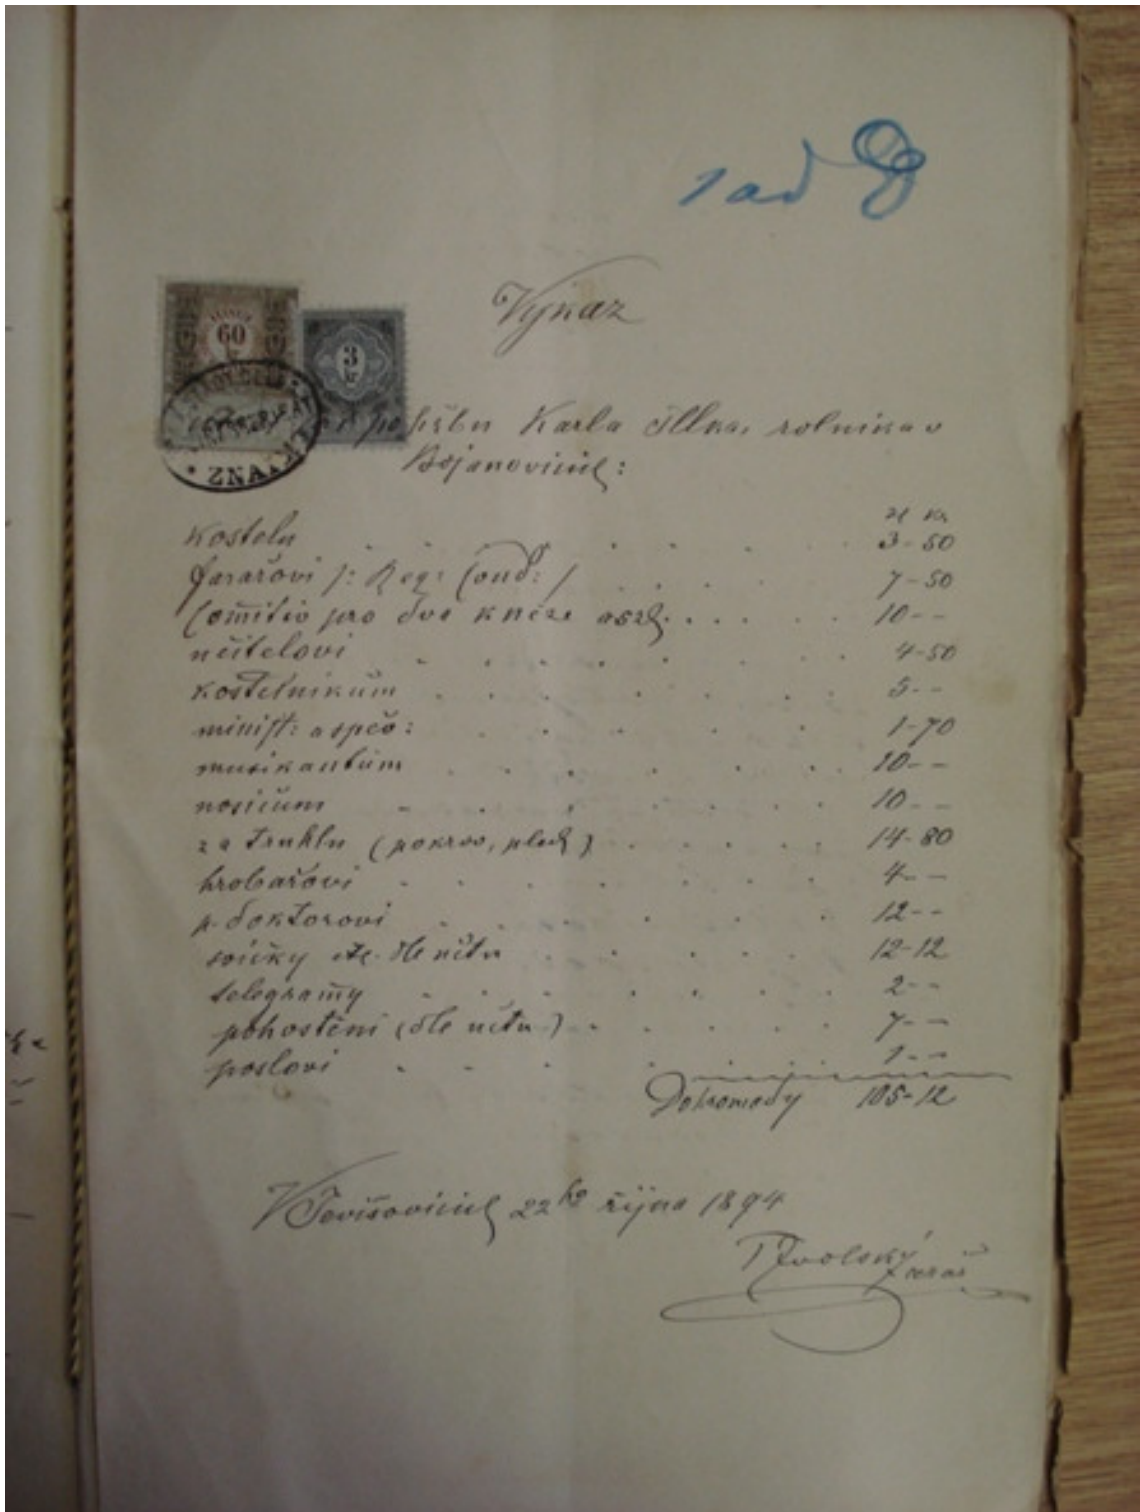 1 ad 8
Výkaz
60
3
kr
pohřbu Karla Illka, rolníka v
Bojanovicích:
ZNAI
zl kr
kostelu 3-50
farářovi /: Reg: Cond: / 7-50
Comitio pro dva kněze 10--
učitelovi 4-50
kostelníkům 5--
minist: a speč: 1-70
musikantům 10--
nosičům 10--
za truhlu (pokrov, plech) 14-80
hrobařovi 4--
p. doktorovi 12--
svíčky etc. dle účtu 12-12
telegramy 2--
pohostění (dle účtu) 7--
poslovi 1--
Dohromady 105-12
V Tavíkovicích 22ho října 1894
farář